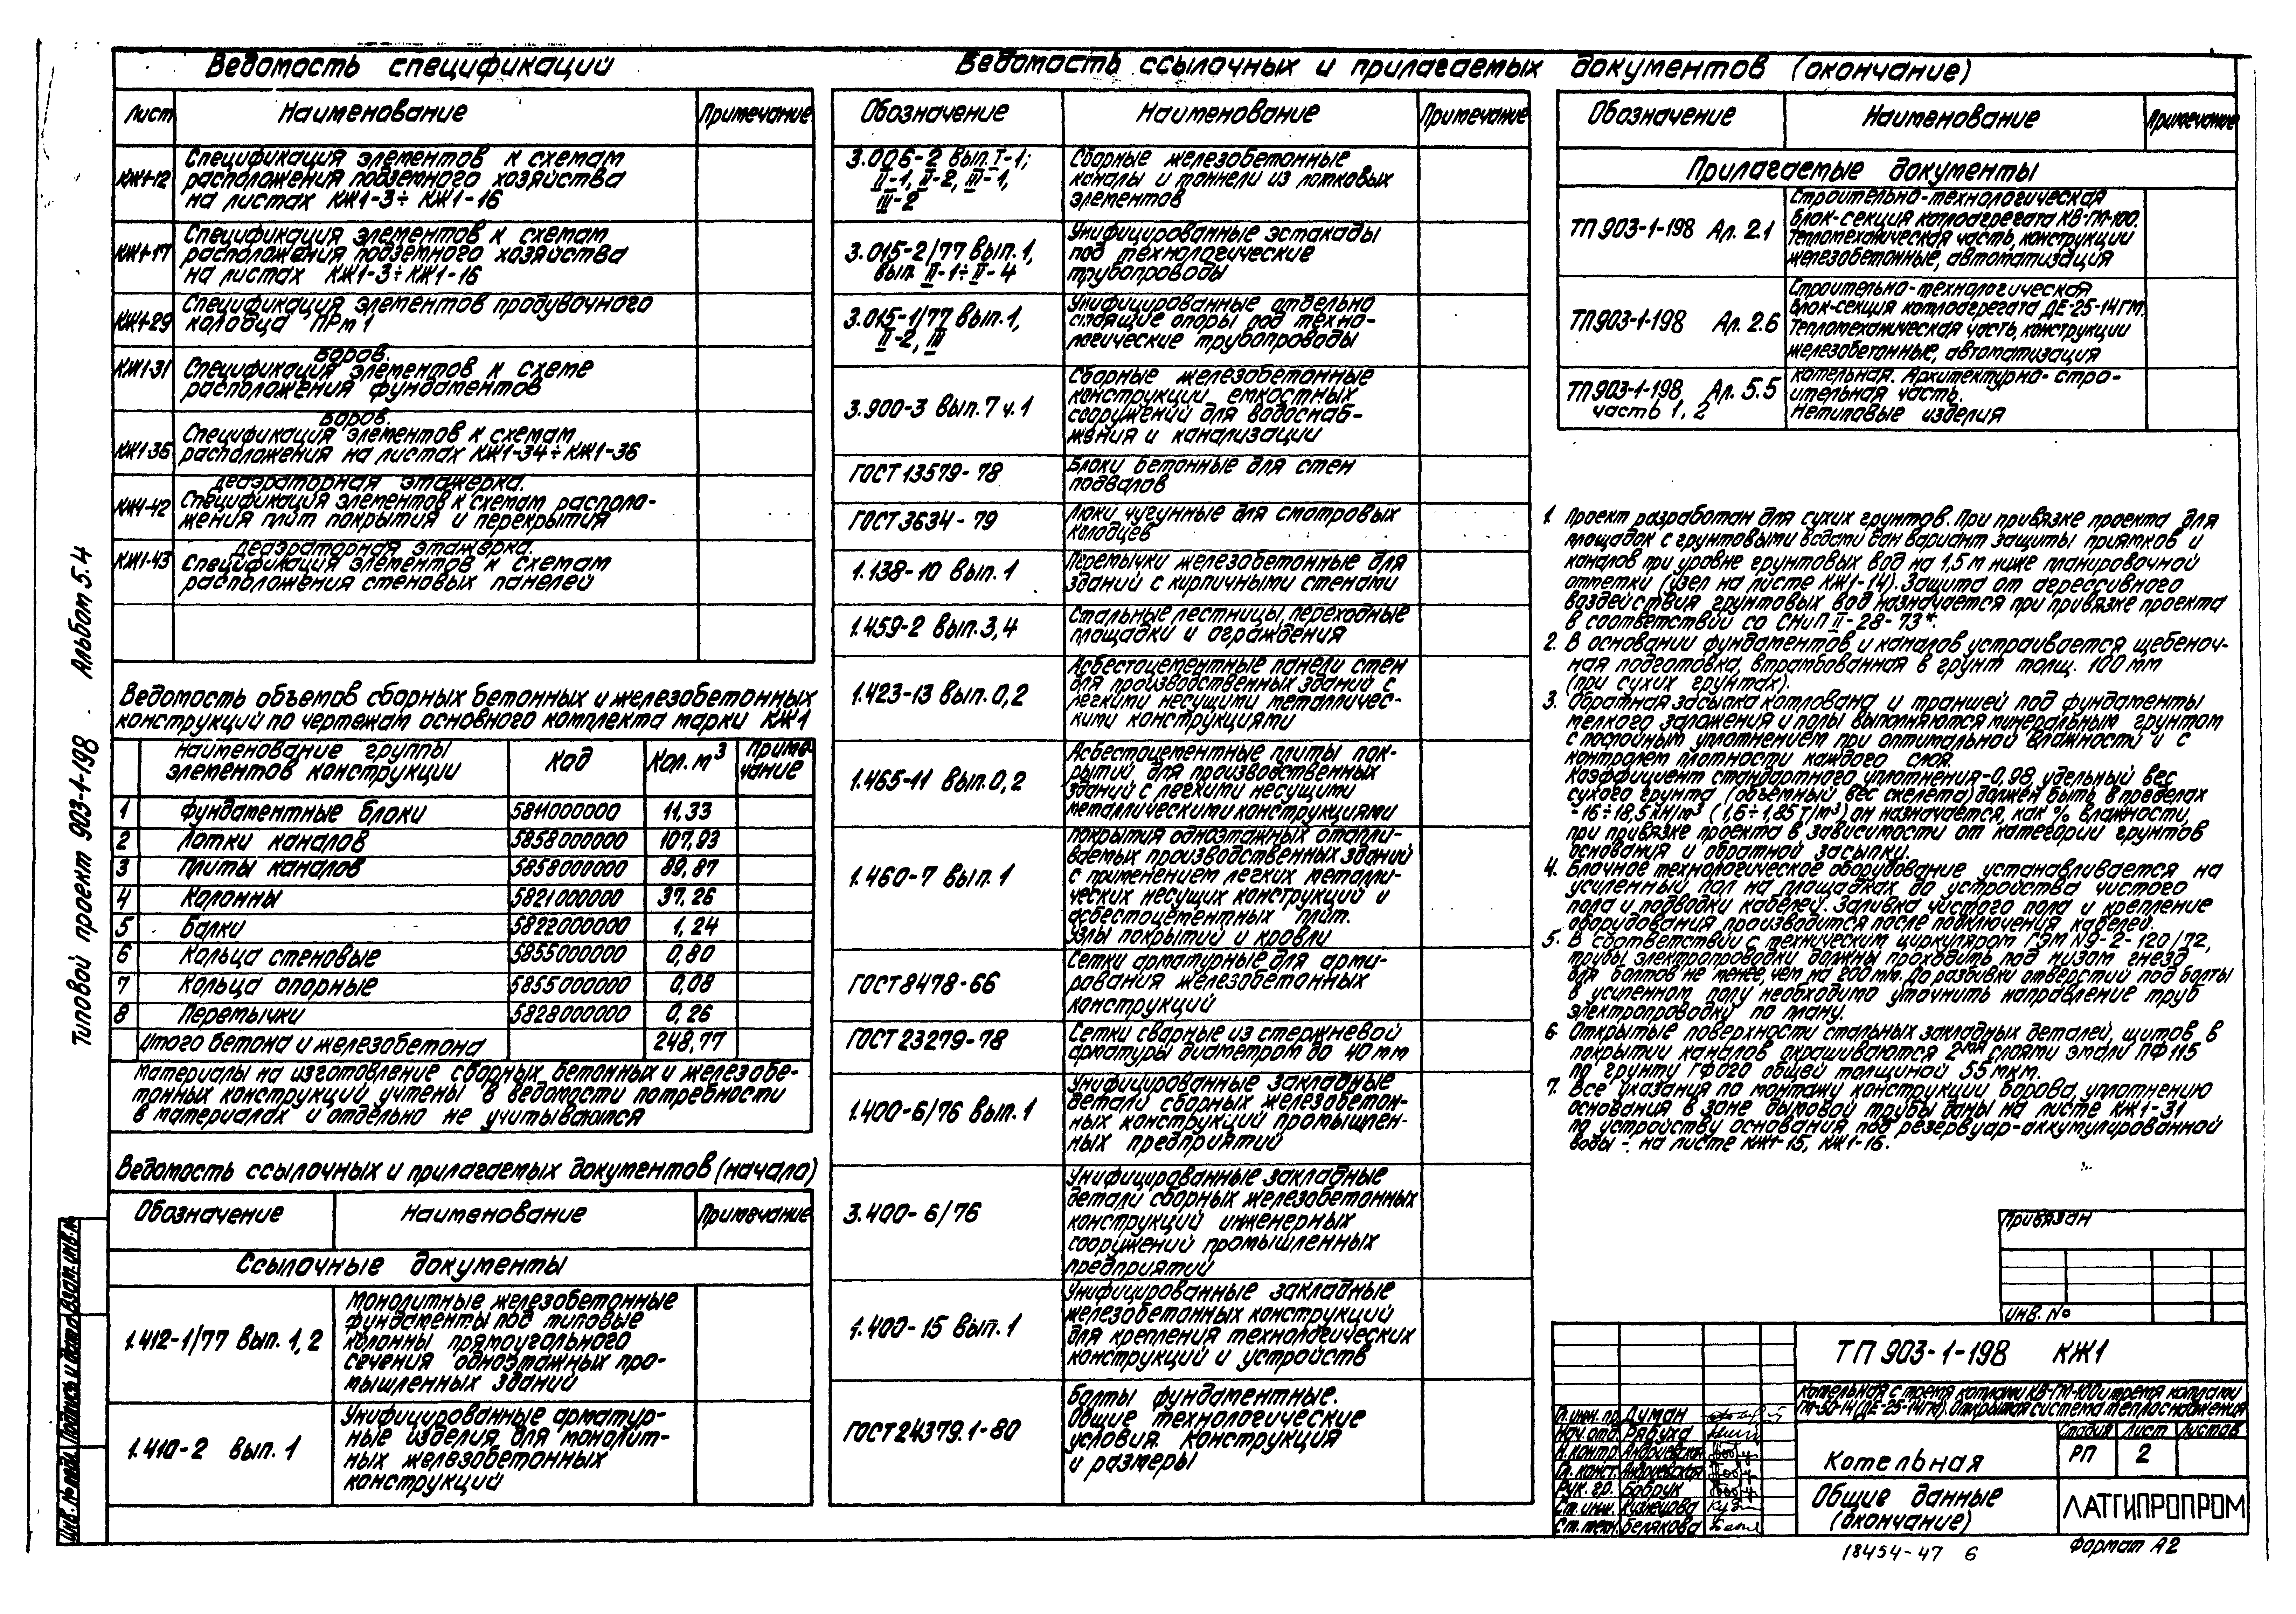 Ведомость спецификаций
Лист Наименование Примечание
КЖ1-12 Спецификация элементов к схемам
расположения подземного хозяйства
на листах КЖ1-3÷КЖ1-16
КЖ1-17 Спецификация элементов к схемам
расположения подземного хозяйства
на листах КЖ1-3÷КЖ1-16
КЖ1-29 Спецификация элементов продувочного
колодца ПРм1
Боров.
КЖ1-31 Спецификация элементов к схеме
расположения фундаментов
Боров.
Спецификация элементов к схемам
КЖ1-36 расположения на листах КЖ1-34÷КЖ1-36
Деаэраторная этажерка.
КЖ1-42 Спецификация элементов к схемам располо-
жения плит покрытия и перекрытия
Деаэраторная этажерка.
КЖ1-43 Спецификация элементов к схемам
расположения стеновых панелей
Ведомость объемов сборных бетонных и железобетонных
конструкций по чертежам основного комплекта марки КЖ1
Наименование группы
элементов конструкции Код Кол. м³ Приме-
чание
1 Фундаментные блоки 5811000000 11,33
2 Лотки каналов 5858000000 107,93
3 Плиты каналов 5858000000 89,87
4 Колонны 5821000000 37,26
5 Балки 5822000000 1,24
6 Кольца стеновые 5855000000 0,80
7 Кольца опорные 5855000000 0,08
8 Перемычки 5828000000 0,26
Итого бетона и железобетона 248,77
Материалы на изготовление сборных бетонных и железобе-
тонных конструкций учтены в ведомости потребности
в материалах и отдельно не учитываются
Ведомость ссылочных и прилагаемых документов (начало)
Обозначение Наименование Примечание
Ссылочные документы
1.412-1/77 Вып. 1, 2 Монолитные железобетонные
фундаменты под типовые
колонны прямоугольного
сечения одноэтажных про-
мышленных зданий
1.410-2 вып. 1 Унифицированные арматур-
ные изделия для монолит-
ных железобетонных
конструкций
Ведомость ссылочных и прилагаемых документов (окончание)
Обозначение Наименование Примечание
3.006-2 вып. I-1;
II-1, II-2, III-1,
III-2
Сборные железобетонные
каналы и тоннели из лотковых
элементов
3.015-2/77 вып. 1,
вып. II-1÷II-4
Унифицированные эстакады
под технологические
трубопроводы
3.015-1/77 вып. 1,
II-2, III
Унифицированные отдельно
стоящие опоры под техно-
логические трубопроводы
3.900-3 вып. 7 ч. 1
Сборные железобетонные
конструкции емкостных
сооружений для водоснаб-
жения и канализации
ГОСТ 13579-78 Блоки бетонные для стен
подвалов
ГОСТ 3634-79 Люки чугунные для смотровых
колодцев
1.138-10 вып. 1 Перемычки железобетонные для
зданий с кирпичными стенами
1.459-2 вып. 3,4 Стальные лестницы, переходные
площадки и ограждения
1.423-13 вып. 0,2 Асбестоцементные панели стен
для производственных зданий с
легкими несущими металличес-
кими конструкциями
1.465-11 вып. 0,2 Асбестоцементные плиты пок-
рытий для производственных
зданий с легкими несущими
металлическими конструкциями
1.460-7 вып. 1 Покрытия одноэтажных отапли-
ваемых производственных зданий
с применением легких металли-
ческих несущих конструкций и
асбестоцементных плит.
Узлы покрытий и кровли
ГОСТ 8478-66 Сетки арматурные для арми-
рования железобетонных
конструкций
ГОСТ 23279-78 Сетки сварные из стержневой
арматуры диаметром до 40 мм
1.400-6/76 вып. 1 Унифицированные закладные
детали сборных железобетон-
ных конструкций промышлен-
ных предприятий
3.400-6/76 Унифицированные закладные
детали сборных железобетонных
конструкций инженерных
сооружений промышленных
предприятий
1.400-15 вып. 1 Унифицированные закладные
железобетонных конструкций
для крепления технологических
конструкций и устройств
ГОСТ 24379.1-80 Болты фундаментные.
Общие технологические
условия. Конструкция
и размеры
Обозначение Наименование Примечание
Прилагаемые документы
ТП 903-1-198 Ал. 2.1 Строительно-технологическая
блок-секция котлоагрегата КВ-ГМ-100.
Тепломеханическая часть, конструкции
железобетонные, автоматизация
ТП 903-1-198 Ал. 2.6 Строительно-технологическая
блок-секция котлоагрегата ДЕ-25-14ГМ.
Тепломеханическая часть, конструкции
железобетонные, автоматизация
ТП 903-1-198 Ал. 5.5
часть 1, 2
Котельная. Архитектурно-стро-
ительная часть.
Нетиповые изделия
1. Проект разработан для сухих грунтов. При привязке проекта для
площадок с грунтовыми водами дан вариант защиты приямков и
каналов при уровне грунтовых вод на 1,5 м ниже планировочной
отметки (узел на листе КЖ1-14). Защита от агрессивного
воздействия грунтовых вод назначается при привязке проекта
в соответствий со СНиП II-28-73*.
2. В основании фундаментов и каналов устраивается щебеноч-
ная подготовка, втрамбованная в грунт толщ. 100 мм
(при сухих грунтах).
3. Обратная засыпка котлована и траншей под фундаменты
мелкого заложения и полы выполняются минеральным грунтом
с послойным уплотнением при оптимальной влажности и с
контролем плотности каждого слоя.
Коэффициент стандартного уплотнения-0,98, удельный вес
сухого грунта (объемный вес скелета) должен быть в пределах
-16÷18,5 кН/м³ (1,6÷1,85 т/м³) он назначается, как % влажности,
при привязке проекта в зависимости от категории грунтов
основания и обратной засыпки.
4. Блочное технологическое оборудование устанавливается на
усиленный пол на площадках до устройства чистого
пола и подводки кабелей. Заливка чистого пола и крепление
оборудования производится после подключения кабелей.
5. В соответствии с техническим циркуляром ГЭМ №9-2-120/72,
трубы электропроводки должны проходить под низом гнезд
для болтов не менее, чем на 200 мм. До разбивки отверстий под болты
в усиленном полу необходимо уточнить направление труб
электропроводку по плану.
6. Открытые поверхности стальных закладных деталей, щитов в
покрытии каналов окрашиваются 2мя слоями эмали ПФ 115
по грунту ГФ020 общей толщиной 55 мкм.
7. Все указания по монтажу конструкций борова, уплотнению
основания в зоне дымовой трубы даны на листе КЖ1-31
по устройству основания под резервуар-аккумулированной
воды - на листе КЖ1-15, КЖ1-16.
Привязан
Инв. №
ТП 903-1-198 КЖ1
Котельная с тремя котлами КВ-ГМ-100 и тремя котлами
ГМ-50-14 (ДЕ-25-14ГМ). Открытая система теплоснабжения
Гл. инж. пр. Думан
Нач. отд. Рябуха
Н. контр. Андриевская
Гл. конст. Андриевская
Рук. гр. Бобрик
Ст. инж. Кузнецова
Ст. техн. Белякова
Стадия Лист Листов
Котельная РП 2
Общие данные
(окончание)
ЛАТГИПРОПРОМ
18454-47 6 Формат А2
Типовой проект 903-1-198 Альбом 5.4
Инв. № подл. Подпись и дата Взам. инв. №